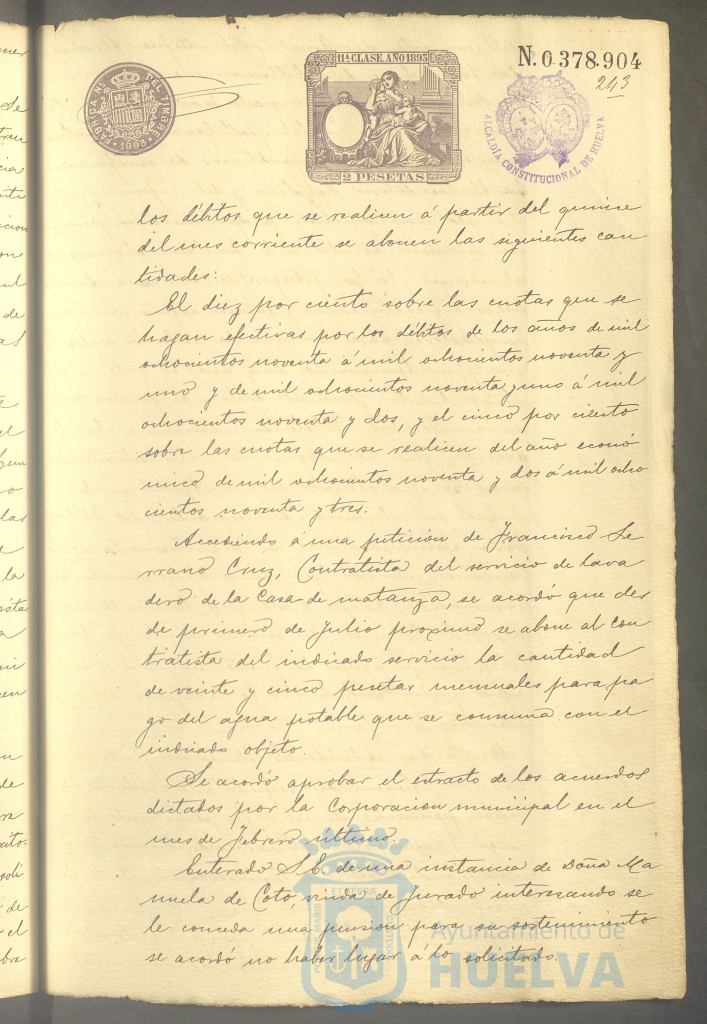 FÁBRICA NL. DEL TIMBRE
1893
11ª CLASE. AÑO 1893
2 PESETAS
N. 0.378.904
243
ALCALDÍA CONSTITUCIONAL DE HUELVA
los débitos que se realicen á partir del quince
del mes corriente se abonen las siguientes can
tidades:
El diez por ciento sobre las cuotas que se
hagan efectivas por los débitos de los años de mil
ochocientos noventa á mil ochocientos noventa y
uno y de mil ochocientos noventa y uno á mil
ochocientos noventa y dos, y el cinco por ciento
sobre las cuotas que se realicen del año econó
mico de mil ochocientos noventa y dos á mil ocho
cientos noventa y tres.
Accediendo á una petición de Francisco Se
rrano Cruz, Contratista del servicio de lava
dero de la Casa-de matanza, se acordó que des
de primero de Julio proximo se abone al con
tratista del indicado servicio la cantidad
de veinte y cinco pesetas mensuales para pa
go del agua potable que se consuma con el
indicado objeto.
Se acordó aprobar el extracto de los acuerdos
dictados por la Corporacion municipal en el
mes de Febrero ultimo.
Enterado S.E. de una instancia de Doña Ma
nuela de Coto, viuda de Jurado interesando se
le conceda una pension para su sostenimiento
se acordó no haber lugar á lo solicitado.
Ayuntamiento de
HUELVA